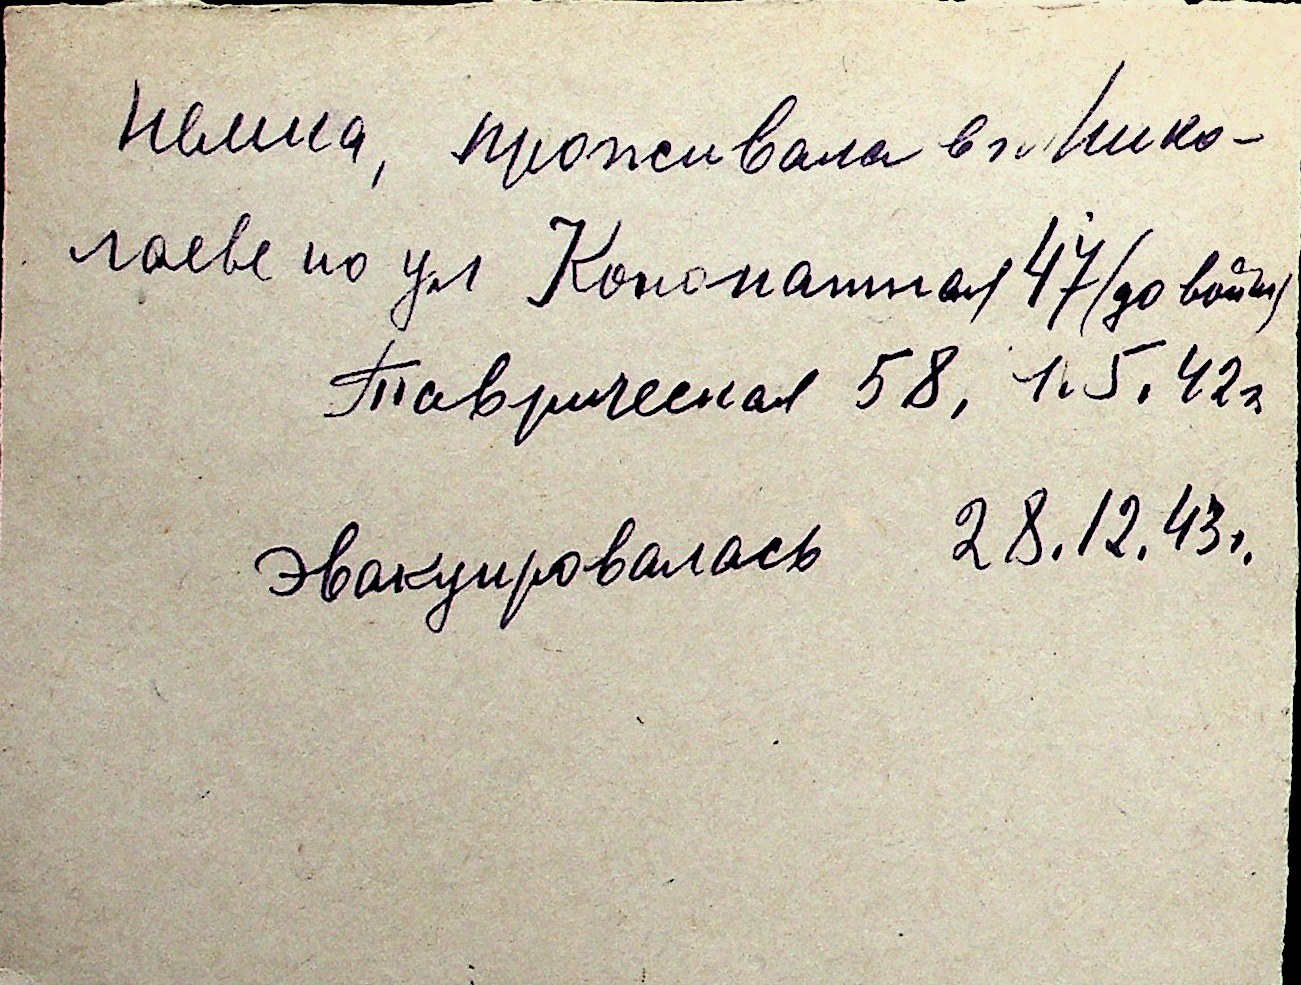 Немка, проживала в г. Нико-
лаеве по ул Конопатная 47 (до войны)
Таврическая 58, 1.5.42г
Эвакуировалась 28.12.43г.